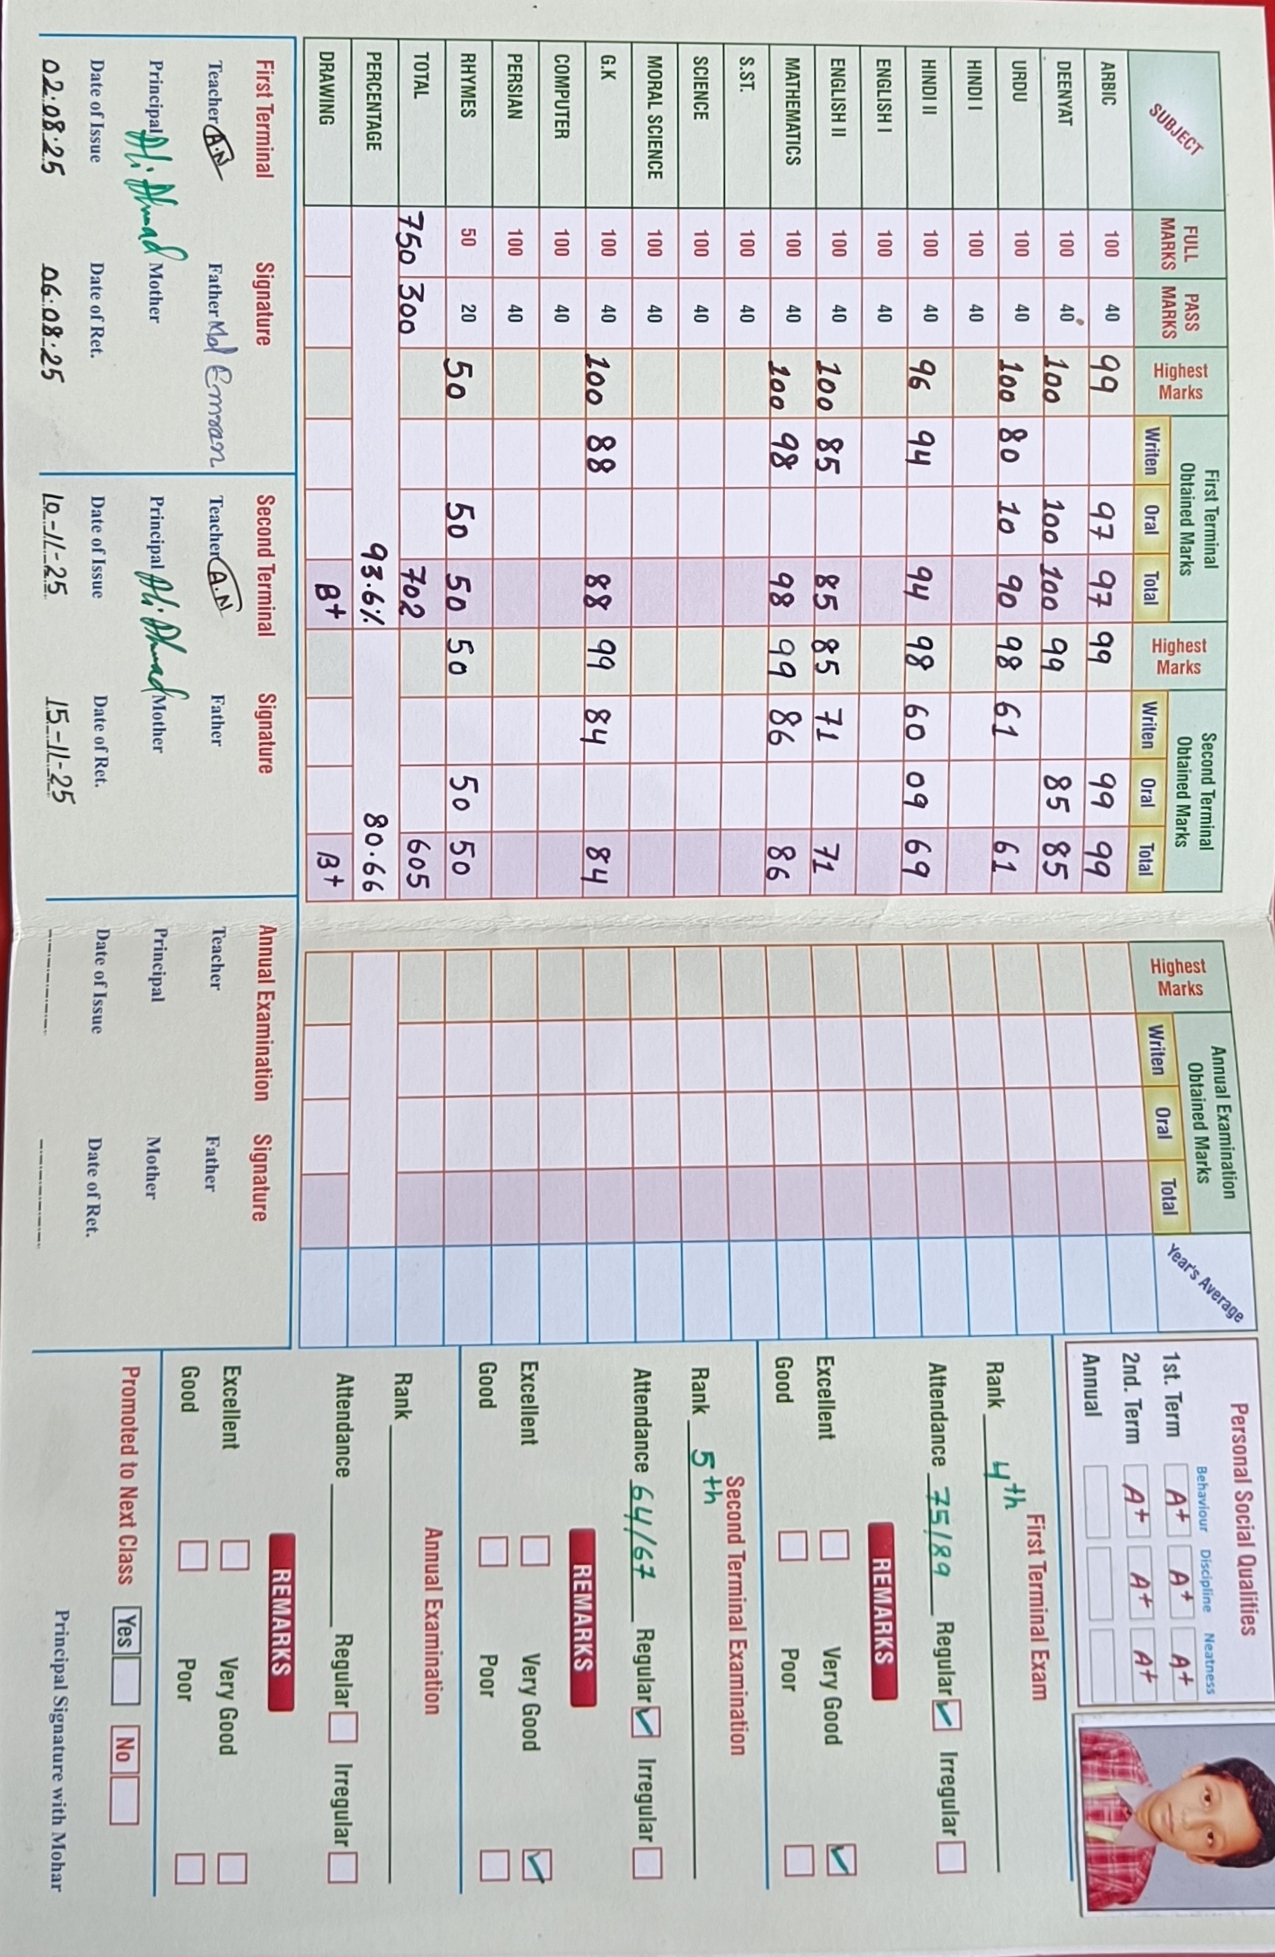 SUBJECT FULL MARKS PASS MARKS Highest Marks First Terminal Obtained Marks Writen Oral Total Highest Marks Second Terminal Obtained Marks Writen Oral Total Highest Marks Annual Examination Obtained Marks Writen Oral Total Year's Average
ARBIC 100 40 99 97 97 99 99 99
DEENYAT 100 40 100 100 100 99 85 85
URDU 100 40 100 80 10 90 98 61 61
HINDI I 100 40
HINDI II 100 40 96 94 94 98 60 09 69
ENGLISH I 100 40
ENGLISH II 100 40 100 85 85 85 71 71
MATHEMATICS 100 40 100 98 98 99 86 86
S.ST. 100 40
SCIENCE 100 40
MORAL SCIENCE 100 40
G.K 100 40 100 88 88 99 84 84
COMPUTER 100 40
PERSIAN 100 40
RHYMES 50 20 50 50 50 50 50 50
TOTAL 750 300 702 605
PERCENTAGE 93.6% 80.66
DRAWING B+ B+
First Terminal Signature
Teacher A.N Father Md Emran
Principal Ali Ahmad Mother
Date of Issue Date of Ret.
02:08:25 06:08:25
Second Terminal Signature
Teacher A.N Father
Principal Ali Ahmad Mother
Date of Issue Date of Ret.
10-11-25 15-11-25
Annual Examination Signature
Teacher Father
Principal Mother
Date of Issue Date of Ret.
Personal Social Qualities
Behaviour Discipline Neatness
1st. Term A+ A+ A+
2nd. Term A+ A+ A+
Annual
First Terminal Exam
Rank 4th
Attendance 75/89 Regular Irregular
REMARKS
Excellent Very Good
Good Poor
Second Terminal Examination
Rank 5th
Attendance 64/67 Regular Irregular
REMARKS
Excellent Very Good
Good Poor
Annual Examination
Rank
Attendance Regular Irregular
REMARKS
Excellent Very Good
Good Poor
Promoted to Next Class Yes No
Principal Signature with Mohar